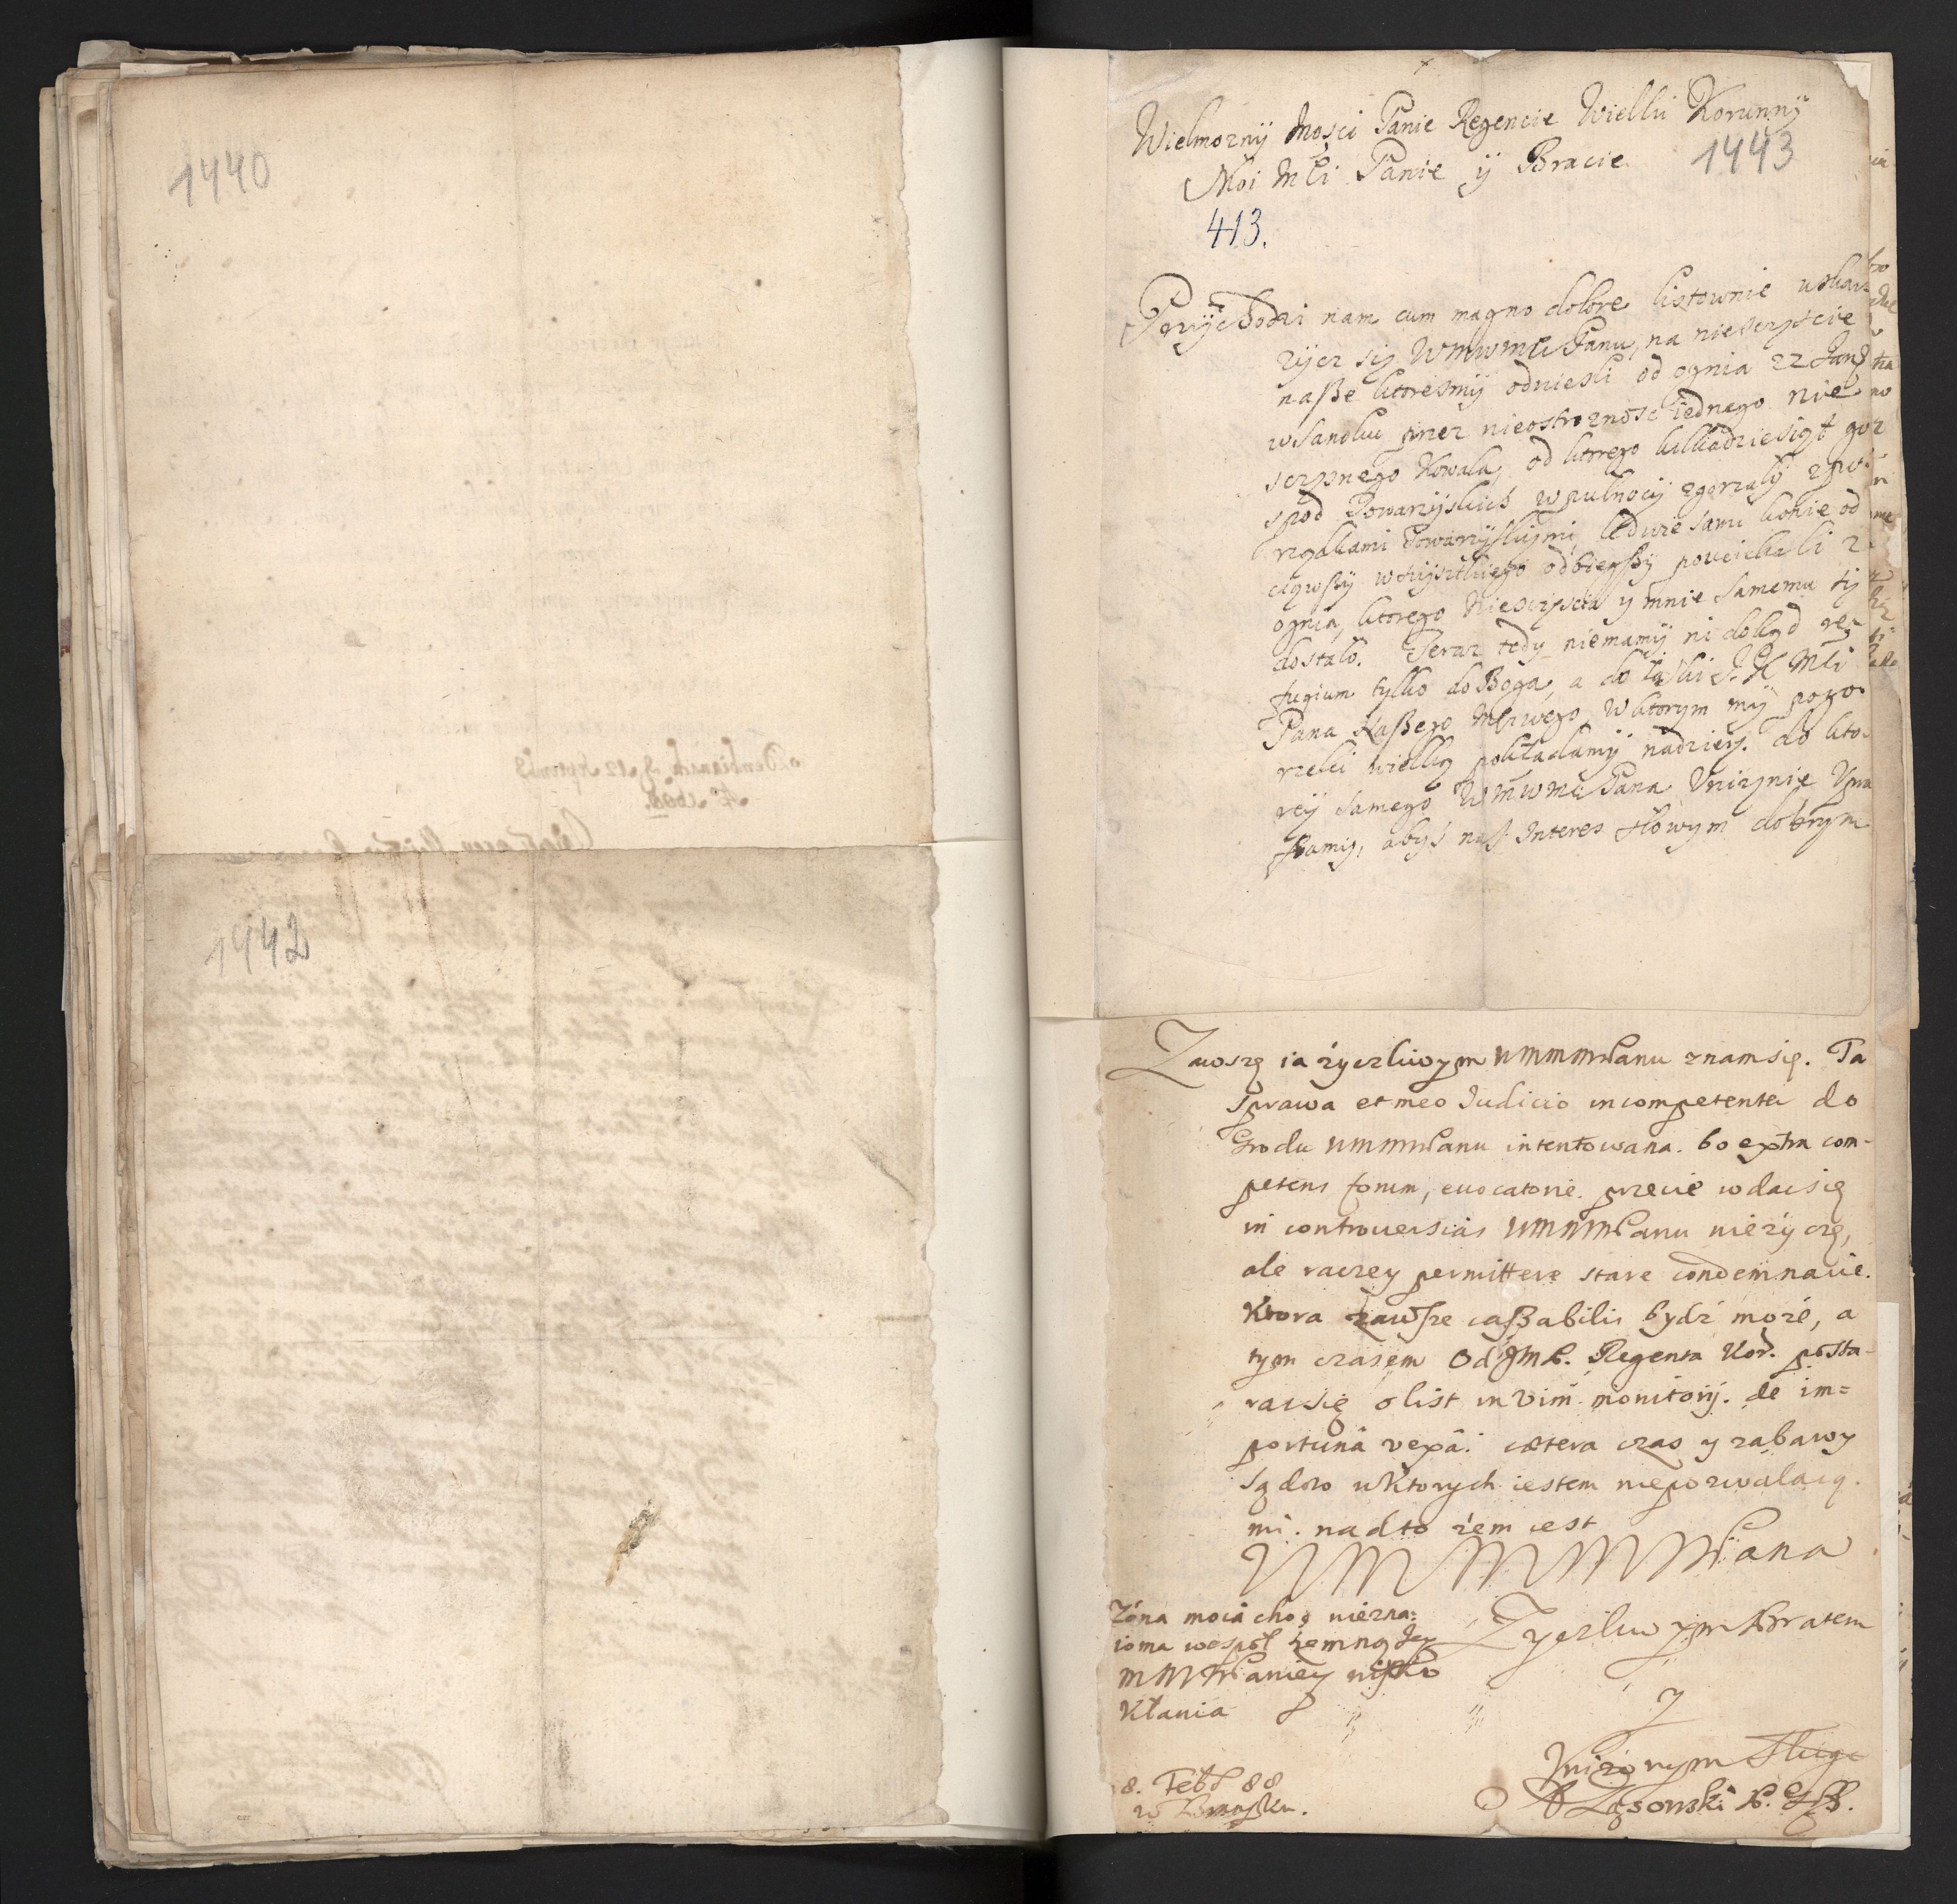 1440
1442
Wielmozny Mosci Panie Regencie Wielki Korunny
Moi Młi Panie y Bracie
1443
413.
Przychodzi nam cum magno dolore listownie uskar
zycz się WMWMći Panu, na niescząscie
naßze ktoresmy odniesli od ognia 22 Jan
w Sandku przez nieostroznosc iednego nie
sczęnego Kowala, od ktorego kilkadziesiąt go
spod Towarzyskich w pułnocy zgorzały z po
rządkami Towarzyskiymi, ledwie sami konie od
ciąwszy wszyskiego odbiegszy pouciekali z
ognia, ktorego Niesczęscia y mnie samemu się
dostało. Teraz tedy niemamy ni dokąd re
fugium tylko do Boga, a do łaski J. K Młi
Pana Naßego Młiwego, w ktorym my pogo
rzelci wielką pokładamy nadzieię. do kto
rey samego WMWMći Pana Unizęnie Upra
szamy, abys nasz Interes słowym dobrym
Zawszę ia życzliwym WMMMPanu znamsię. Ta
sprawa et meo Judicio incompetenter do
Grodu WMMMPanu intentowana. bo extra com-
petens forum, evocatorie. przecie wdacsię
in controversias WMMMPanu nieżyczę,
ale raczey permittere stare condemnacie.
Ktora zawsze caßabilis bydź może, a
tym czasem Od JMP. Regenta Kor. posta-
racsię o list in vim monitorij. de im=
portuna vexa: cætera czas y zabawy
sądow w Ktorych iestem niepozwalaią.
mi. nad to żem iest
WMMMMPana
Zona moia choc niezna:
ioma wespoł zemną Jey
MMMPaniey nisko
Kłania
Zyczliwym Bratem
y
Unizonym Sługą
8. Feb 88